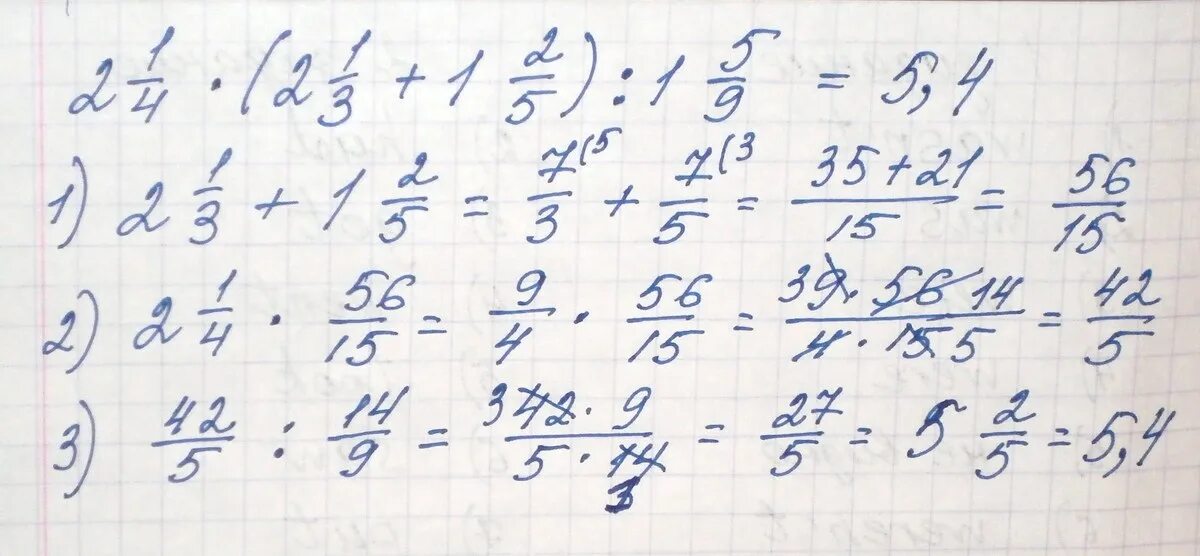 2 1/4 · (2 1/3 + 1 2/5) : 1 5/9 = 5,4
1) 2 1/3 + 1 2/5 = 7(5/3 + 7(3/5 = 35+21/15 = 56/15
2) 2 1/4 · 56/15 = 9/4 · 56/15 = 3 9 · 56 14/4 · 15 5 = 42/5
3) 42/5 : 14/9 = 3 42 · 9/5 · 14 1 = 27/5 = 5 2/5 = 5,4